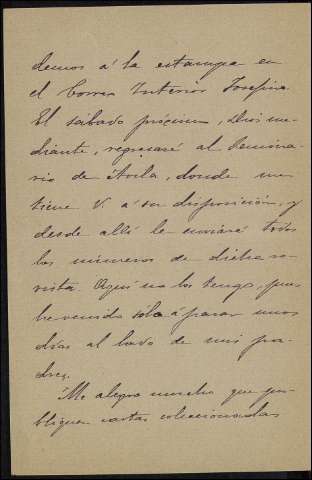 demos á la estampa en
el Correo Interior Josefino
El sábado próximo, Dios me-
diante, regresaré al Semina-
rio de Ávila, donde me
tiene V. á su disposición, y
desde allí le enviaré todos
los números de dicha re-
vista. Aquí no los tengo, pues
he venido sólo á pasar unos
días al lado de mis pa-
dres.
Me alegro mucho que pu-
bliquen cartas coleccionadas